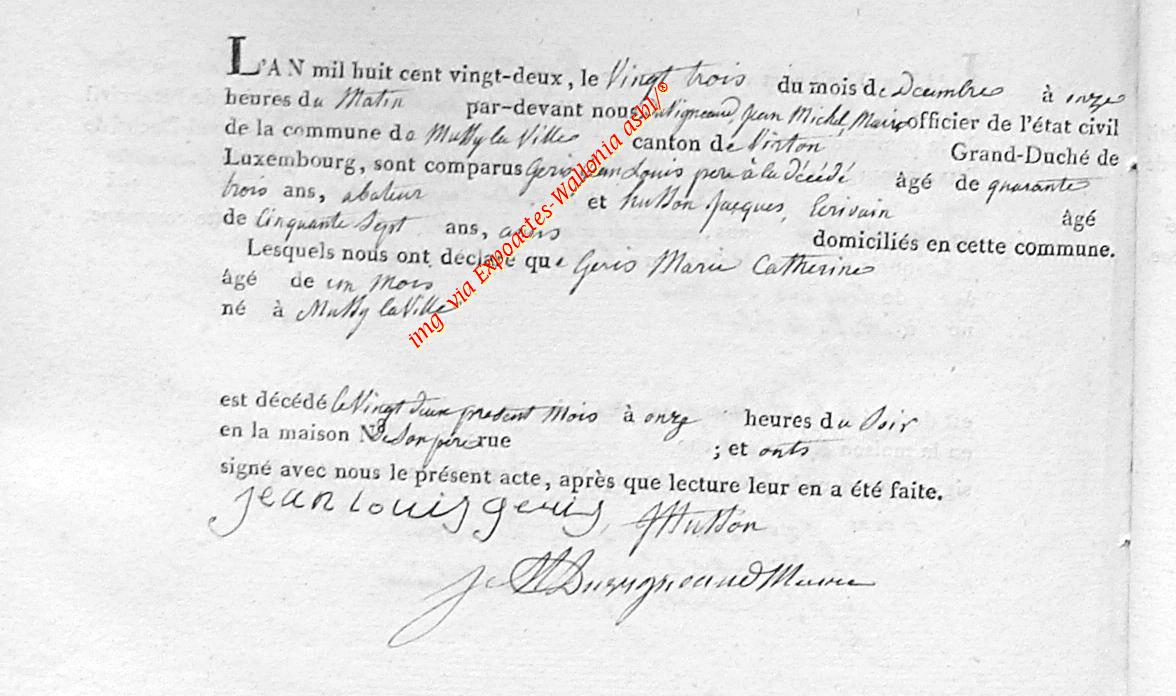 L'AN mil huit cent vingt-deux, le Vingt trois du mois de Decembre à onze
heures du Matin par-devant nous Jean Michel, Maire officier de l'état civil
de la commune de Mussy la Ville canton de Virton Grand-Duché de
Luxembourg, sont comparus Geris Jean Louis pere à la décédé âgé de quarante
trois ans, et husson Jacques, Ecrivain âgé
de Cinquante Sept ans, amis domiciliés en cette commune.
Lesquels nous ont déclaré que Geris Marie Catherine
âgé de un mois
né à Mussy la Ville
img via Expoactes-Wallonia asbl/©
est décédé le Vingt deux present mois à onze heures du Soir
en la maison N.º de Son père rue ; et onts
signé avec nous le présent acte, après que lecture leur en a été faite.
jean louis geris, JHusson
Maire